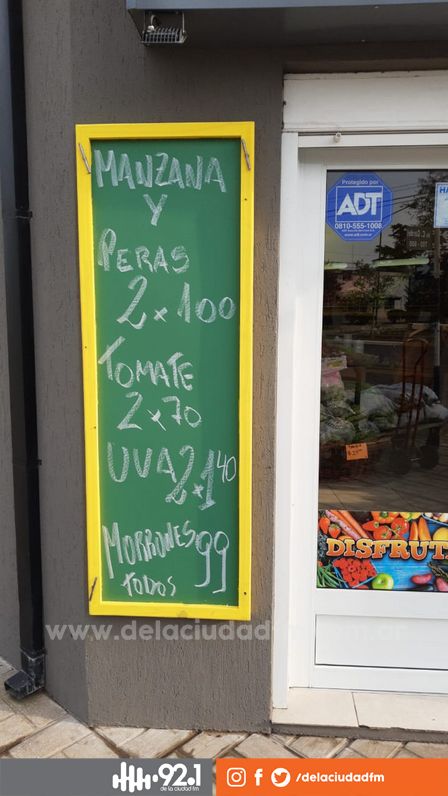 MANZANA
Y
PERAS
2x100
TOMATE
2x70
UVA 2x1 40
MORRONES 99
TODOS
Protegido por
ADT
0810-555-1008
www.adt.com.ar
DISFRUT
www.delaciudadfm.com.ar
92.1
de la ciudad fm
/delaciudadfm